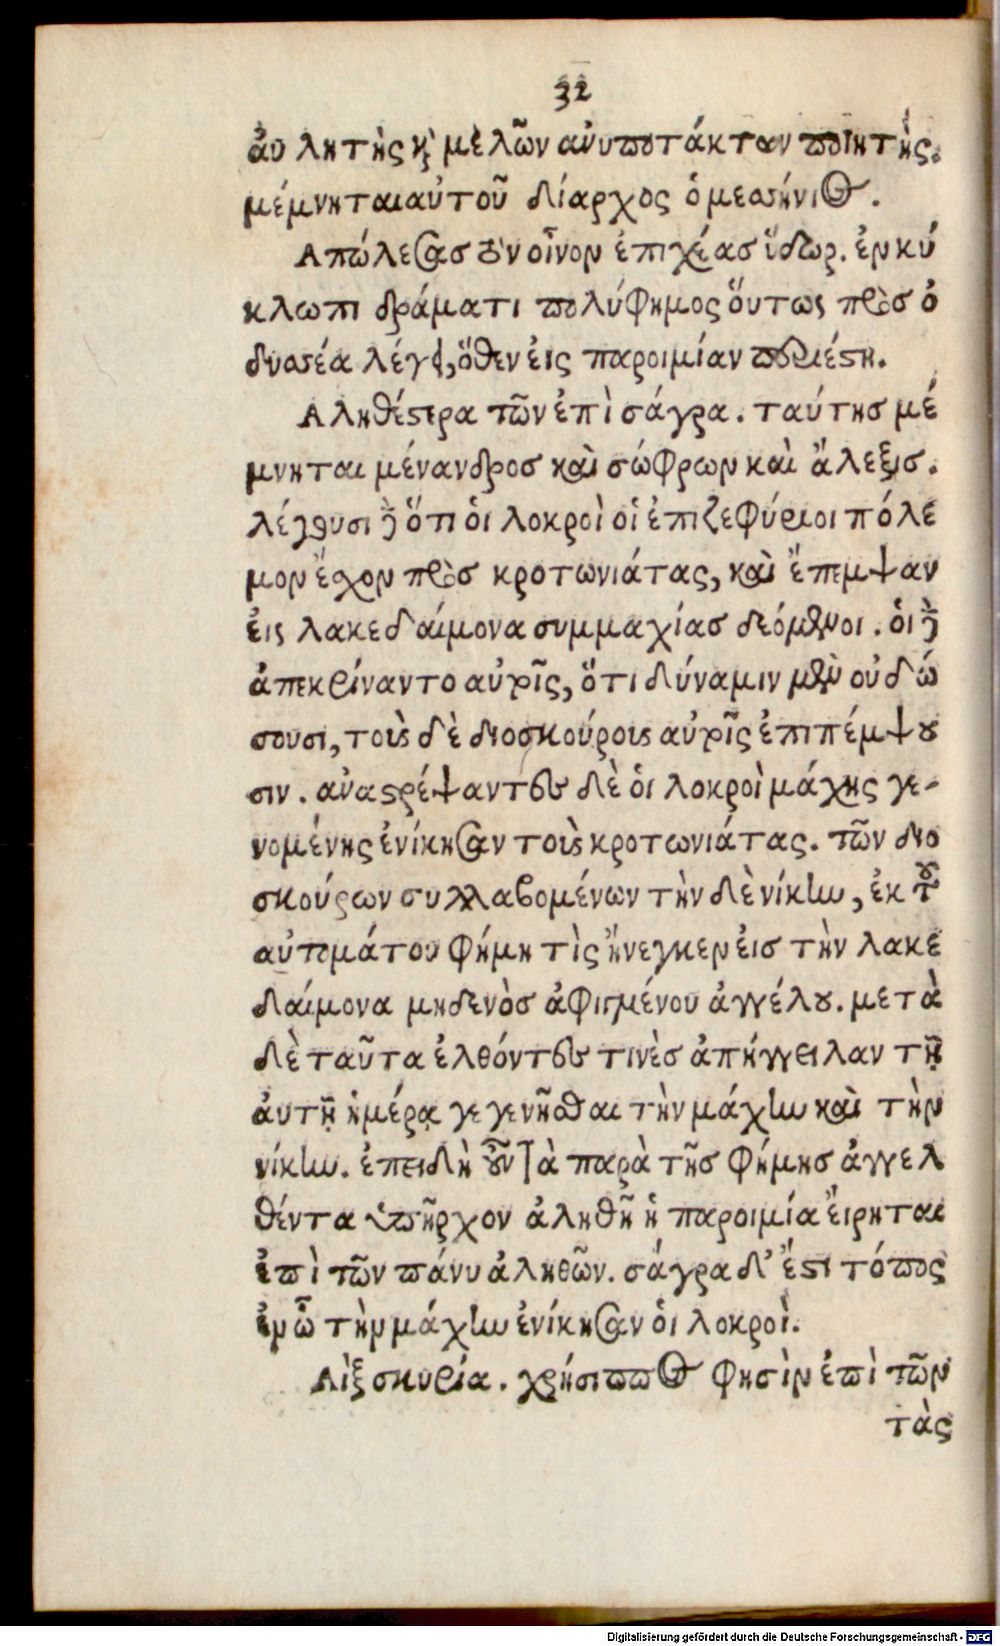 32
ἀυ λητὴς κὶ μελῶν ανυποτάκταν ποιητὴς.
μέμνηται αὐτοῦ δίαρχος ὁ μεσσήνιος.
Απώλεσας τὸν οἶνον ἐπιχέας ὕδωρ. ἐν κύ
κλωπι δράματι πολύφημος ὅυτως πρὸσ ὀ
δυσσέα λέγει, ὅθεν ἐις παροιμίαν περιέστη.
Αληθέστερα τῶν ἐπὶ σάγρα. ταύτησ μέ
μνηται μένανδροσ καὶ σώφρων καὶ ἄλεξισ.
λέγουσι δὲ ὅτι ὁι λοκροὶ οἱ ἐπιζεφύριοι πόλε
μον ἔχον πρὸσ κροτωνιάτας, καὶ ἔπεμψαν
ἐις λακεδαίμονα συμμαχίασ δεόμενοι. ὁι δὲ
ἀπεκρίναντο αὐτοῖς, ὅτι δύναμιν μὲν οὐ δώ
σουσι, τοὺς δὲ διοσκούρους αὐτοῖς ἐπιπέμψου
σιν. ἀναστρέψαντες δὲ ὁι λοκροὶ μάχης γε-
νομένης ἐνίκησαν τοὺς κροτωνιάτας. τῶν διο
σκούρων συλλαβομένων τὴν δὲ νίκην, ἐκ τοῦ
αὐτομάτου φήμη τὶς ἤνεγκεν εἰσ τὴν λακε
δαίμονα μηδενὸσ ἀφιγμένου ἀγγέλου. μετὰ
δὲ ταῦτα ἐλθόντες τινὲσ ἀπήγγειλαν τῇ
ἀυτῇ ἡμέρᾳ γεγενῆσθαι τὴν μάχην καὶ τὴν
νίκην. ἐπειδὴ οὖν τὰ παρὰ τῆσ φήμησ ἀγγελ
θέντα ὑπῆρχον ἀληθῆ ἡ παροιμία ἔιρηται
ἐπὶ τῶν πάνυ ἀληθῶν. σάγρα δ' ἔστι τόπος
ἐν ᾧ τὴν μάχην ἐνίκησαν ὁι λοκροὶ.
Αὶξ σκυρία. χρήσιππος φησὶν ἐπὶ τῶν
τὰς
Digitalisierung gefördert durch die Deutsche Forschungsgemeinschaft - DFG